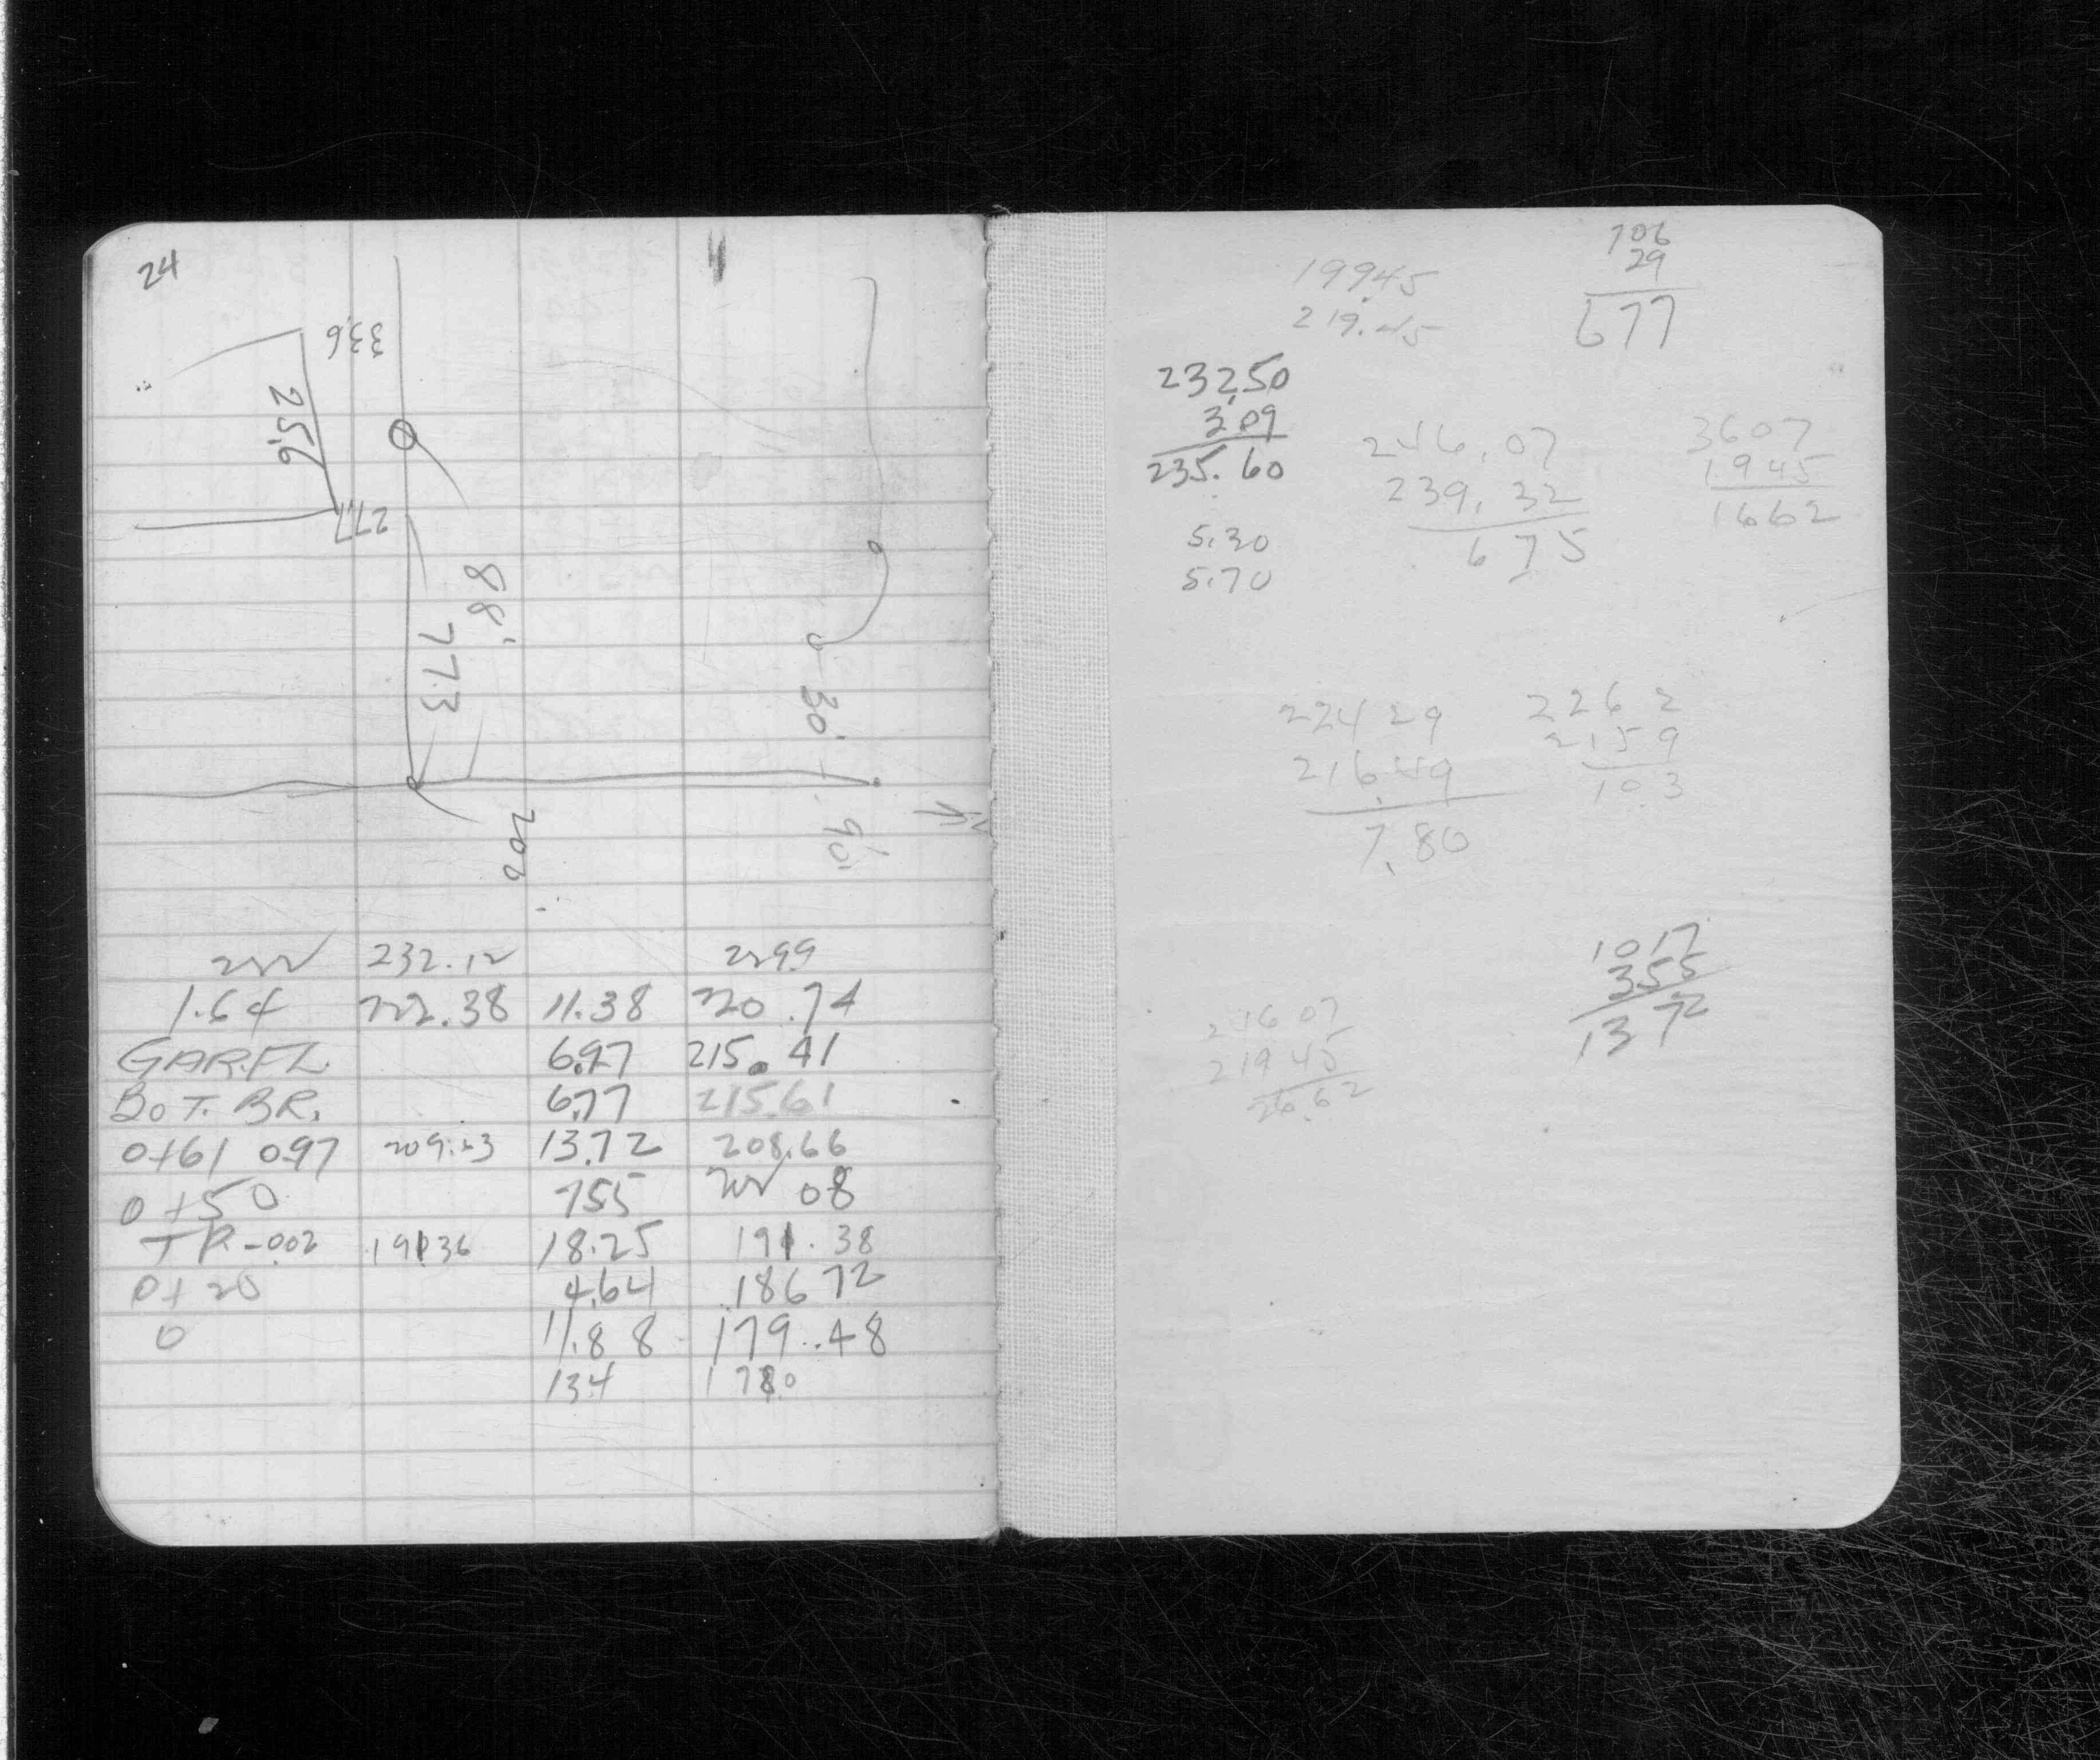 24
33.6
25.6
27.7
88'
77.3
30'
90'
200
222 232.12 229.9
1.64 222.38 11.38 220.74
GAR.FL. 6.97 215.41
BOT. BR. 6.77 215.61
0+61 0.97 209.63 13.72 208.66
0+50 7.55 202 08
TP -0.02 191.36 18.25 191.38
0+20 4.64 186 72
0 11.88 179.48
13.4 178.0
706
29
677
199.45
219.45
232.50
3.09
235.60
5.30
5.70
246.07
239.32
6 7 5
3607
1945
1662
224 29
216.49
7.80
226 2
215 9
10.3
10 17
355
13 72
246 07
219 45
26.62